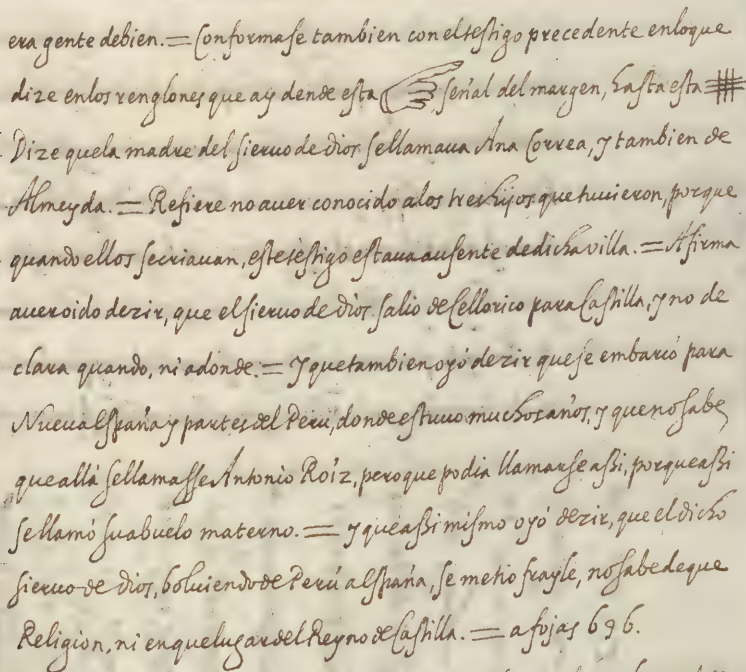 era gente debien. = Conformase tambien con el testigo precedente en loque
dize en los renglones que ay dende esta señal del margen, hasta esta
Dize que la madre del sieruo de Dios se llamaua Ana Correa, y tambien de
Almeyda. = Refiere no auer conocido a los tres hijos que tuuieron, porque
quando ellos se criauan, este testigo estaua ausente de dicha villa. = Afirma
auer oido dezir, que el sieruo de Dios salio de Cellorico para Castilla, y no de
clara quando, ni adonde. = y que tambien oyó dezir que se embarcó para
Nueua España y partes del Perú, donde estuuo muchos años, y que no sabe
que allá se llamasse Antonio Roiz, pero que podia llamarse assi, porque assi
se llamó su abuelo materno. = y que assi mismo oyó dezir, que el dicho
sieruo de Dios, boluiendo de Perú a España, se metio frayle, no sabe de que
Religion, ni en que lugar del Reyno de Castilla. = a fojas 696.